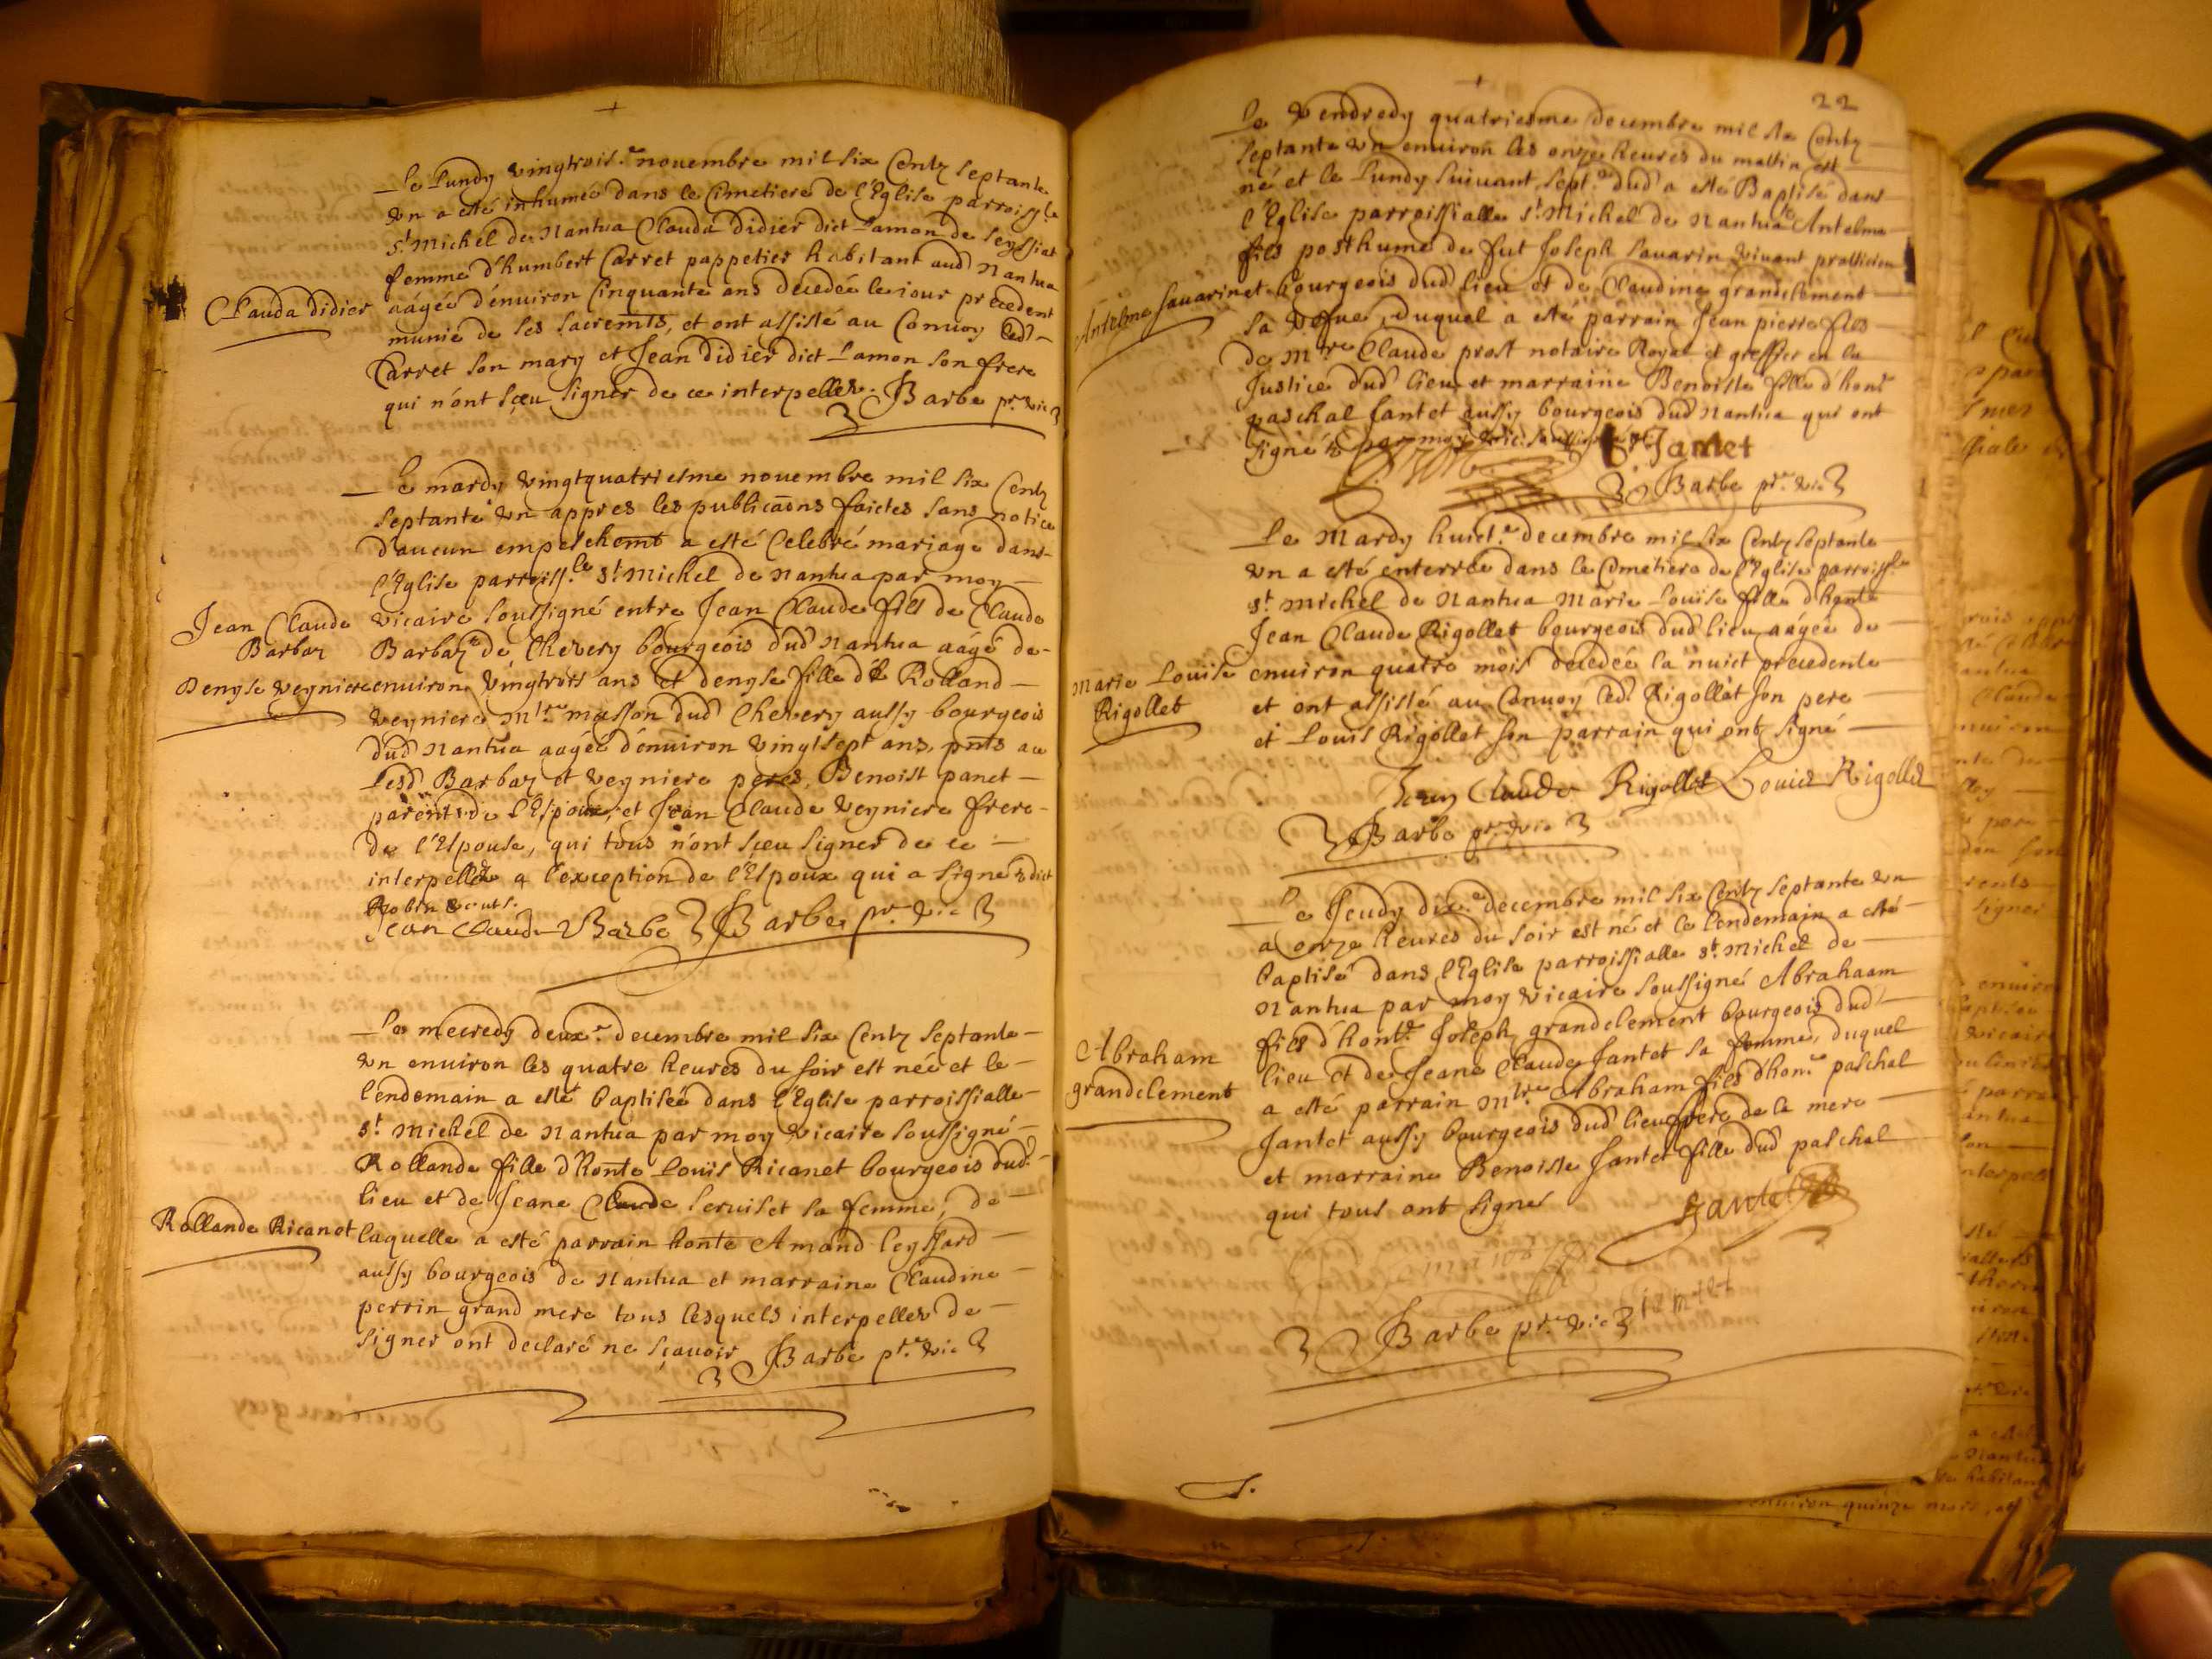 Le Lundy vingtrois.e novembre mil six Centz septante
vn a esté inhumée dans le Cimetiere de l'Eglise parroiss.le
st Michel de Nantua Clauda Didier dict Lamon de Leyssiat
femme d'humbert Carret pappetier habitant aud Nantua
Clauda Didier
aâgée d'enuiron Cinquante ans decedée le iour precedent
munie de ses sacremts, et ont assisté au Conuoy led
Carret son mary et Jean Didier dict Lamon son frere
qui n'ont sçeu signer de ce interpellez. Barbe pr. vic
Le mardy vingtquatriesme nouembre mil six Centz
septante vn appres les publicaons faictes sans notice
d'aucun empeschemt a esté Celebré mariage dans
l'Eglise parroiss.le st Michel de Nantua par moy
Jean Claude Barbaz
vicaire soussigné entre Jean Claude fils de Claude
Barbaz de Chevery bourgeois dud Nantua aâgé de
Denyse Veyniere
enuiron vingtrois ans et denyse fille de Rolland
Veyniere mtre masson dud Chevery aussy bourgeois
dud Nantua aâgée d'enuiron vingtsept ans, pnts au
Lesd Barbaz et Veyniere peres, Benoist panet
parent de l'Espoux, et Jean Claude Veyniere frere
de l'Espouse, qui tous n'ont sçeu signer de ce
interpellez a l'exception de l'Espoux qui a signé
Jean Claude Barbe Barbe pr. vic
Le mecredy deux.e decembre mil six Centz septante
vn enuiron les quatre heures du soir est née et le
lendemain a esté baptisée dans l'Eglise parroissialle
st Michel de Nantua par moy vicaire soussigné
Rollande fille d'honte Louis Ricanet bourgeois dud
lieu et de Jeane Claude Seruiset sa femme, de
Rollande Ricanet
laquelle a esté parrain honte Amand Leyssard
aussy bourgeois de Nantua et marraine Claudine
perrin grand mere tous lesquels interpellez de
signer ont declaré ne sçauoir Barbe pr. vic
22
Le Vendredy quatriesme decembre mil six Centz
septante vn enuiron les onze heures du mattin est
né et le Lundy suiuant sept.e dud a esté Baptisé dans
l'Eglise parroissialle st Michel de Nantua Antelme
fils posthume de fut Joseph Sauarin viuant pratticien
Antelme Sauarin
et bourgeois dud lieu et de Claudine grandclement
sa vefue, duquel a esté parrain Jean pierre fils
de Mtre Claude prost notaire Royal et greffier en la
Justice dud lieu et marraine Benoiste fille d'hont
paschal Jantet aussy bourgeois dud Nantua qui ont
signé
Jantet
Barbe pr. vic
Le Mardy huict.e decembre mil six Centz septante
vn a esté enterrée dans le Cimetiere de l'Eglise parroiss.le
st Michel de Nantua Marie Louise fille d'honte
Jean Claude Rigollet bourgeois dud lieu aâgée de
Marie Louise Rigollet
enuiron quatre mois decedée la nuict precedente
et ont assisté au Conuoy led Rigollet son pere
et Louis Rigollet son parrain qui ont signé
Jean Claude Rigollet Louis Rigollet
Barbe pr. vic
Le Jeudy dix.e decembre mil six Centz septante vn
a onze heures du soir est né et le lendemain a esté
baptisé dans l'Eglise parroissialle st Michel de
Nantua par moy vicaire soussigné Abrahaam
Abraham grandclement
fils d'hont. Joseph grandclement bourgeois dud
lieu et de Jeane Claude Jantet sa femme, duquel
a esté parrain Mtre Abraham fils d'hont paschal
Jantet aussy bourgeois dud lieu frere de la mere
et marraine Benoiste Jantet fille dud paschal
qui tous ont signé
Jantet
Barbe pr. vic
Jantet